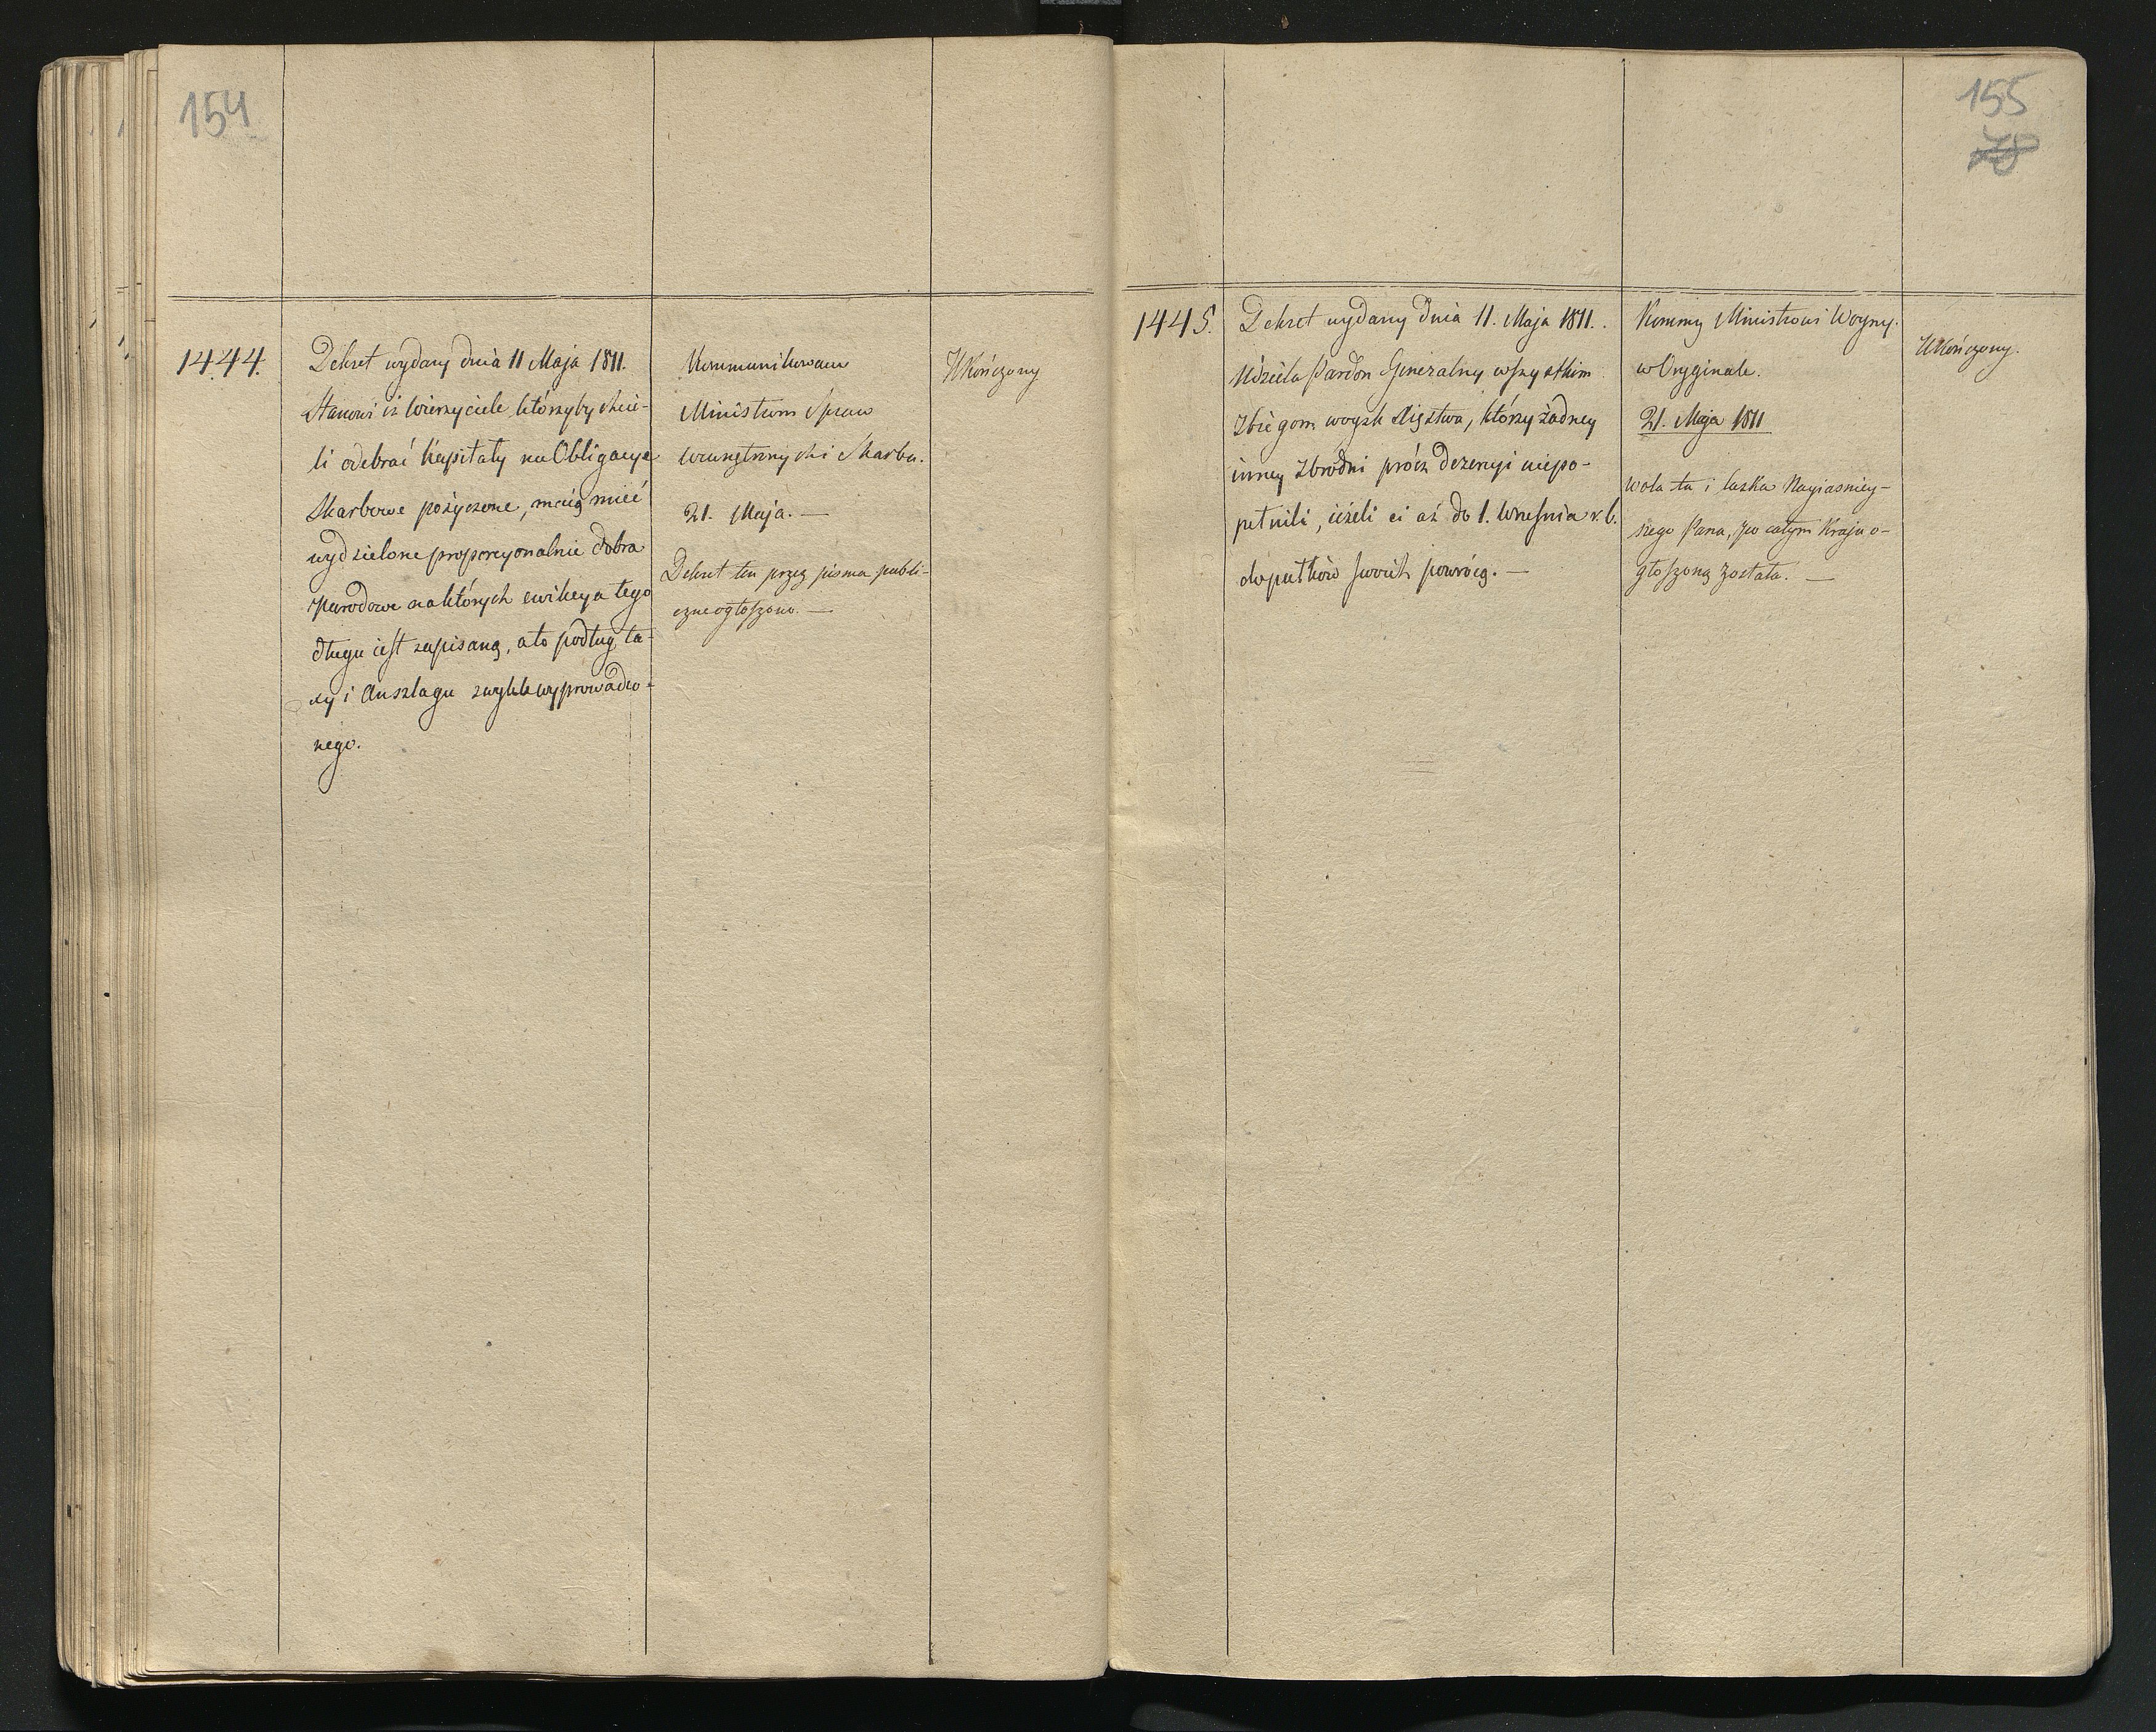 154
1444.
Dekret wydany dnia 11 Maja 1811.
Stanowi iż Wierzyciele, którzyby chcie-
li odebrać Kapitały na Obligacye
Skarbowe pożyczone, maią mieć
wydzielone proporcyonalnie dobra
Narodowe na których ewikcya tego
długu iest zapisaną, a to podług ta-
xy i Anszlagu zwykle wyprowadzo-
nego.
Kommunikowane
Ministrom Spraw
Wewnętrznych i Skarbu.
21. Maja. —
Dekret ten przez pisma publi-
czne ogłoszono. —
Ukończony
155
70
1445.
Dekret wydany dnia 11. Maja 1811.
Udziela Pardon Generalny wszystkim
Zbiegom woysk Xięstwa, którzy żadney
inney Zbrodni prócz dezercyi niepo-
pełnili, ieżeli ci aż do 1. Wresnia r. b.
do pułków swoich powrócą. —
Kommy Ministrowi Woyny.
w Oryginale.
21. Maja 1811
Wola ta i łaska Nayiasniey-
szego Pana, po całym Kraju o-
głoszoną została. —
Ukończony.